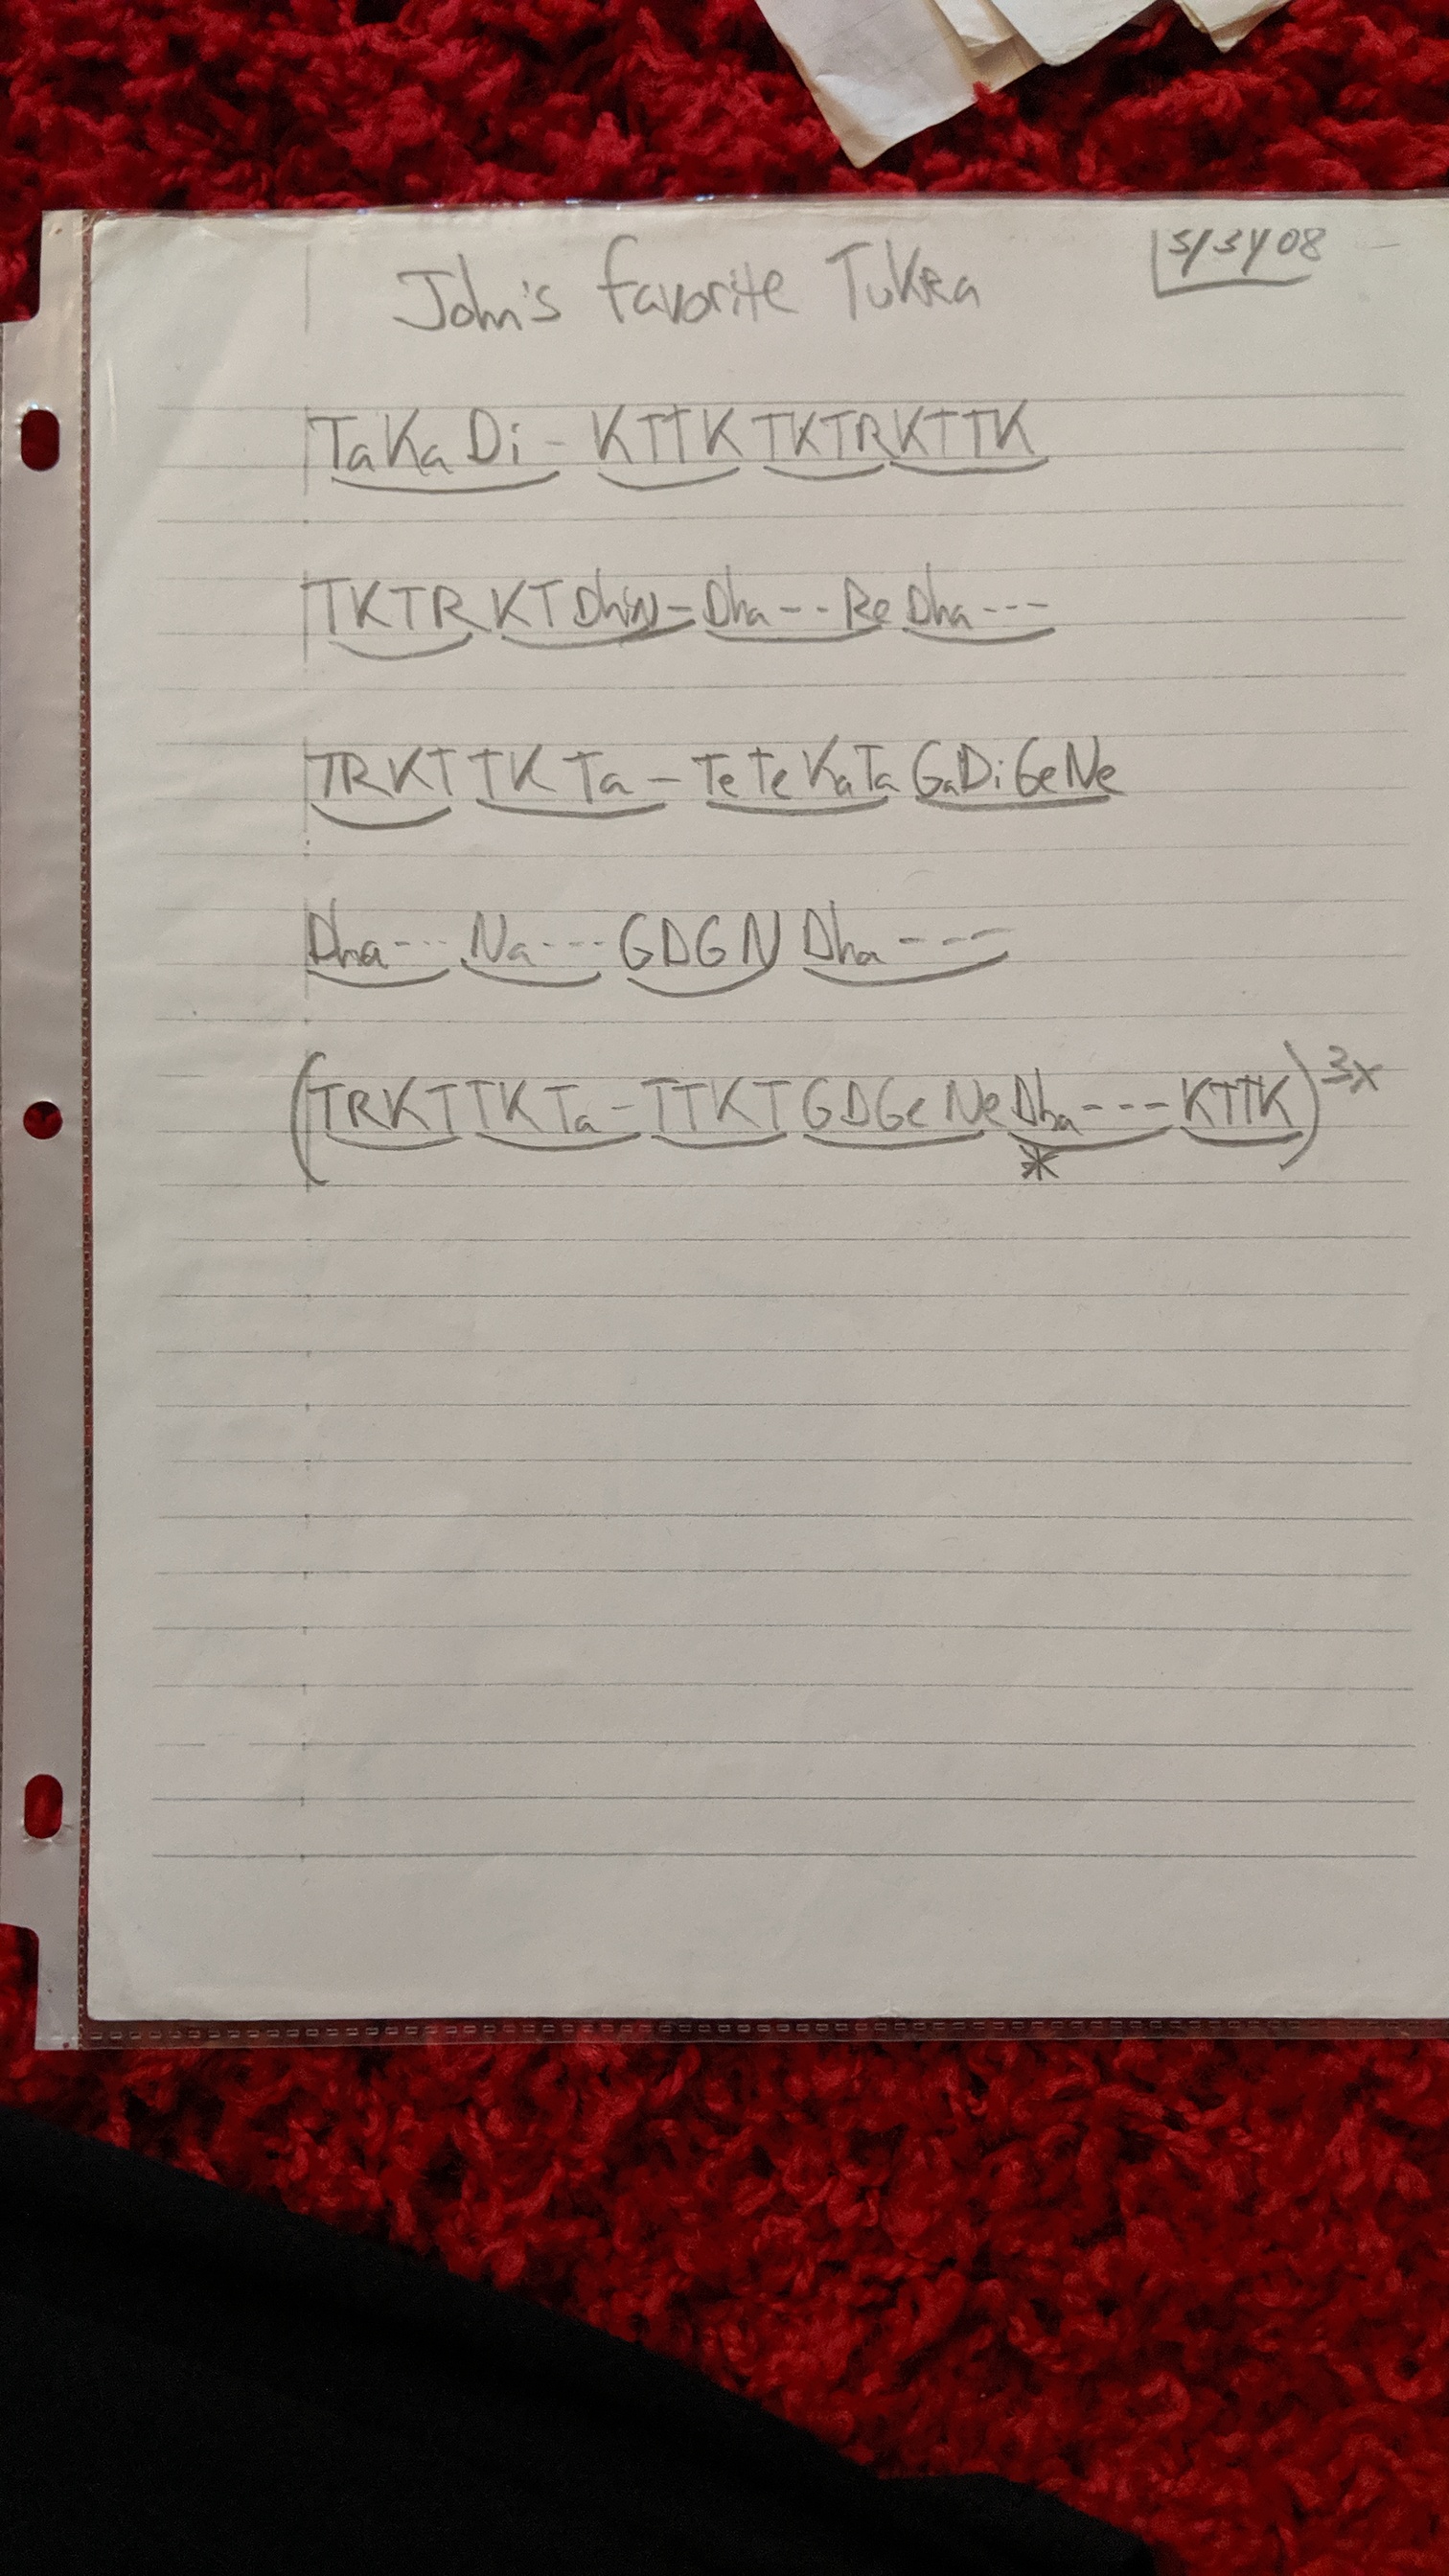 John's favorite Tukra
5/31/08
TaKaDi- KTTK TKTR KTTK
TKTR KTDhiN- Dha---Re Dha---
TRKT TKTa- TeTeKaTa GaDiGeNe
Dha--- Na--- GDGN Dha---
(TRKT TKTa- TTKT GDGeNe Dha--- KTTK) 3x
*